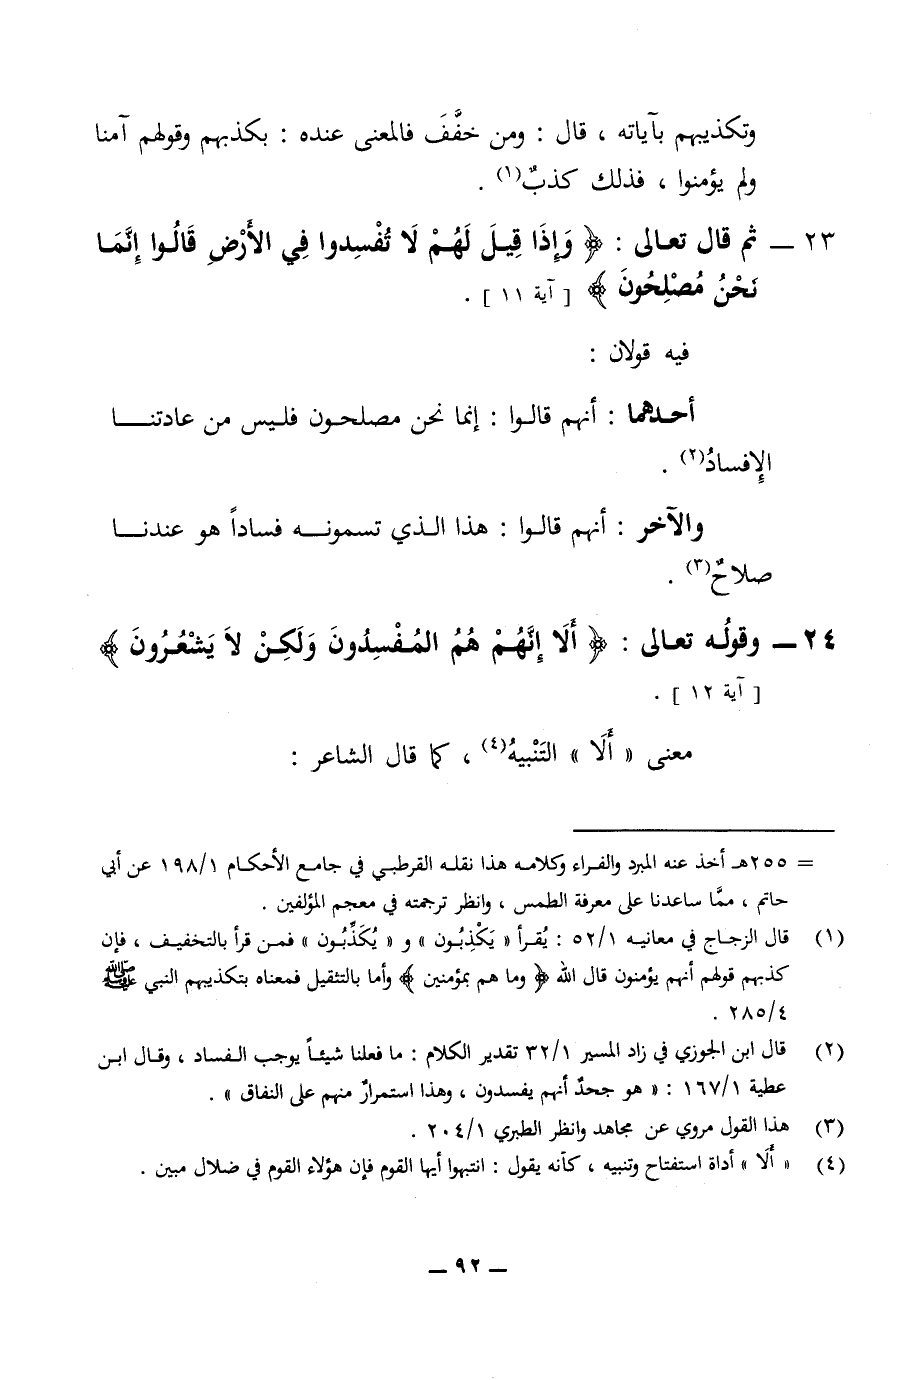 وتكذيبهم بآياته ، قال : ومن خفَّفَ فالمعنى عنده : بكذبهم وقولهم آمنا
ولم يؤمنوا ، فذلك كذبٌ(١) .
٢٣ ـ ثم قال تعالى : ﴿ وَإِذَا قِيلَ لَهُمْ لَا تُفْسِدوا فِي الأَرْضِ قَالُوا إِنَّمَا
نَحْنُ مُصْلِحُونَ ﴾ [ آية ١١ ] .
فيه قولان :
أحدهما : أنهم قالوا : إنما نحن مصلحون فليس من عادتنا
الإفسادُ(٢) .
والآخر : أنهم قالوا : هذا الذي تسمونه فساداً هو عندنا
صلاحٌ(٣) .
٢٤ ـ وقولُه تعالى : ﴿ أَلَا إِنَّهُمْ هُمُ المُفْسِدُونَ وَلَكِنْ لاَ يَشْعُرُونَ ﴾
[ آية ١٢ ] .
معنى « أَلَا » التَنْبيهُ(٤) ، كما قال الشاعر :
= ٢٥٥هـ أخذ عنه المبرد والفراء وكلامه هذا نقله القرطبي في جامع الأحكام ١٩٨/١ عن أبي
حاتم ، ممَّا ساعدنا على معرفة الطمس ، وانظر ترجمته في معجم المؤلفين .
(١) قال الزجاج في معانيه ٥٢/١ : يُقرأ « يَكْذِبُون » و « يُكَذِّبُون » فمن قرأ بالتخفيف ، فإن
كذبهم قولهم أنهم يؤمنون قال الله ﴿ وما هم بمؤمنين ﴾ وأما بالتثقيل فمعناه بتكذيبهم النبي ﷺ
٢٨٥/٤ .
(٢) قال ابن الجوزي في زاد المسير ٣٢/١ تقدير الكلام : ما فعلنا شيئاً يوجب الفساد ، وقال ابن
عطية ١٦٧/١ : « هو جحدٌ أنهم يفسدون ، وهذا استمرارٌ منهم على النفاق » .
(٣) هذا القول مروي عن مجاهد وانظر الطبري ٢٠٤/١ .
(٤) « أَلَا » أداة استفتاح وتنبيه ، كأنه يقول : انتبهوا أيها القوم فإن هؤلاء القوم في ضلال مبين .
ـ ٩٢ ـ